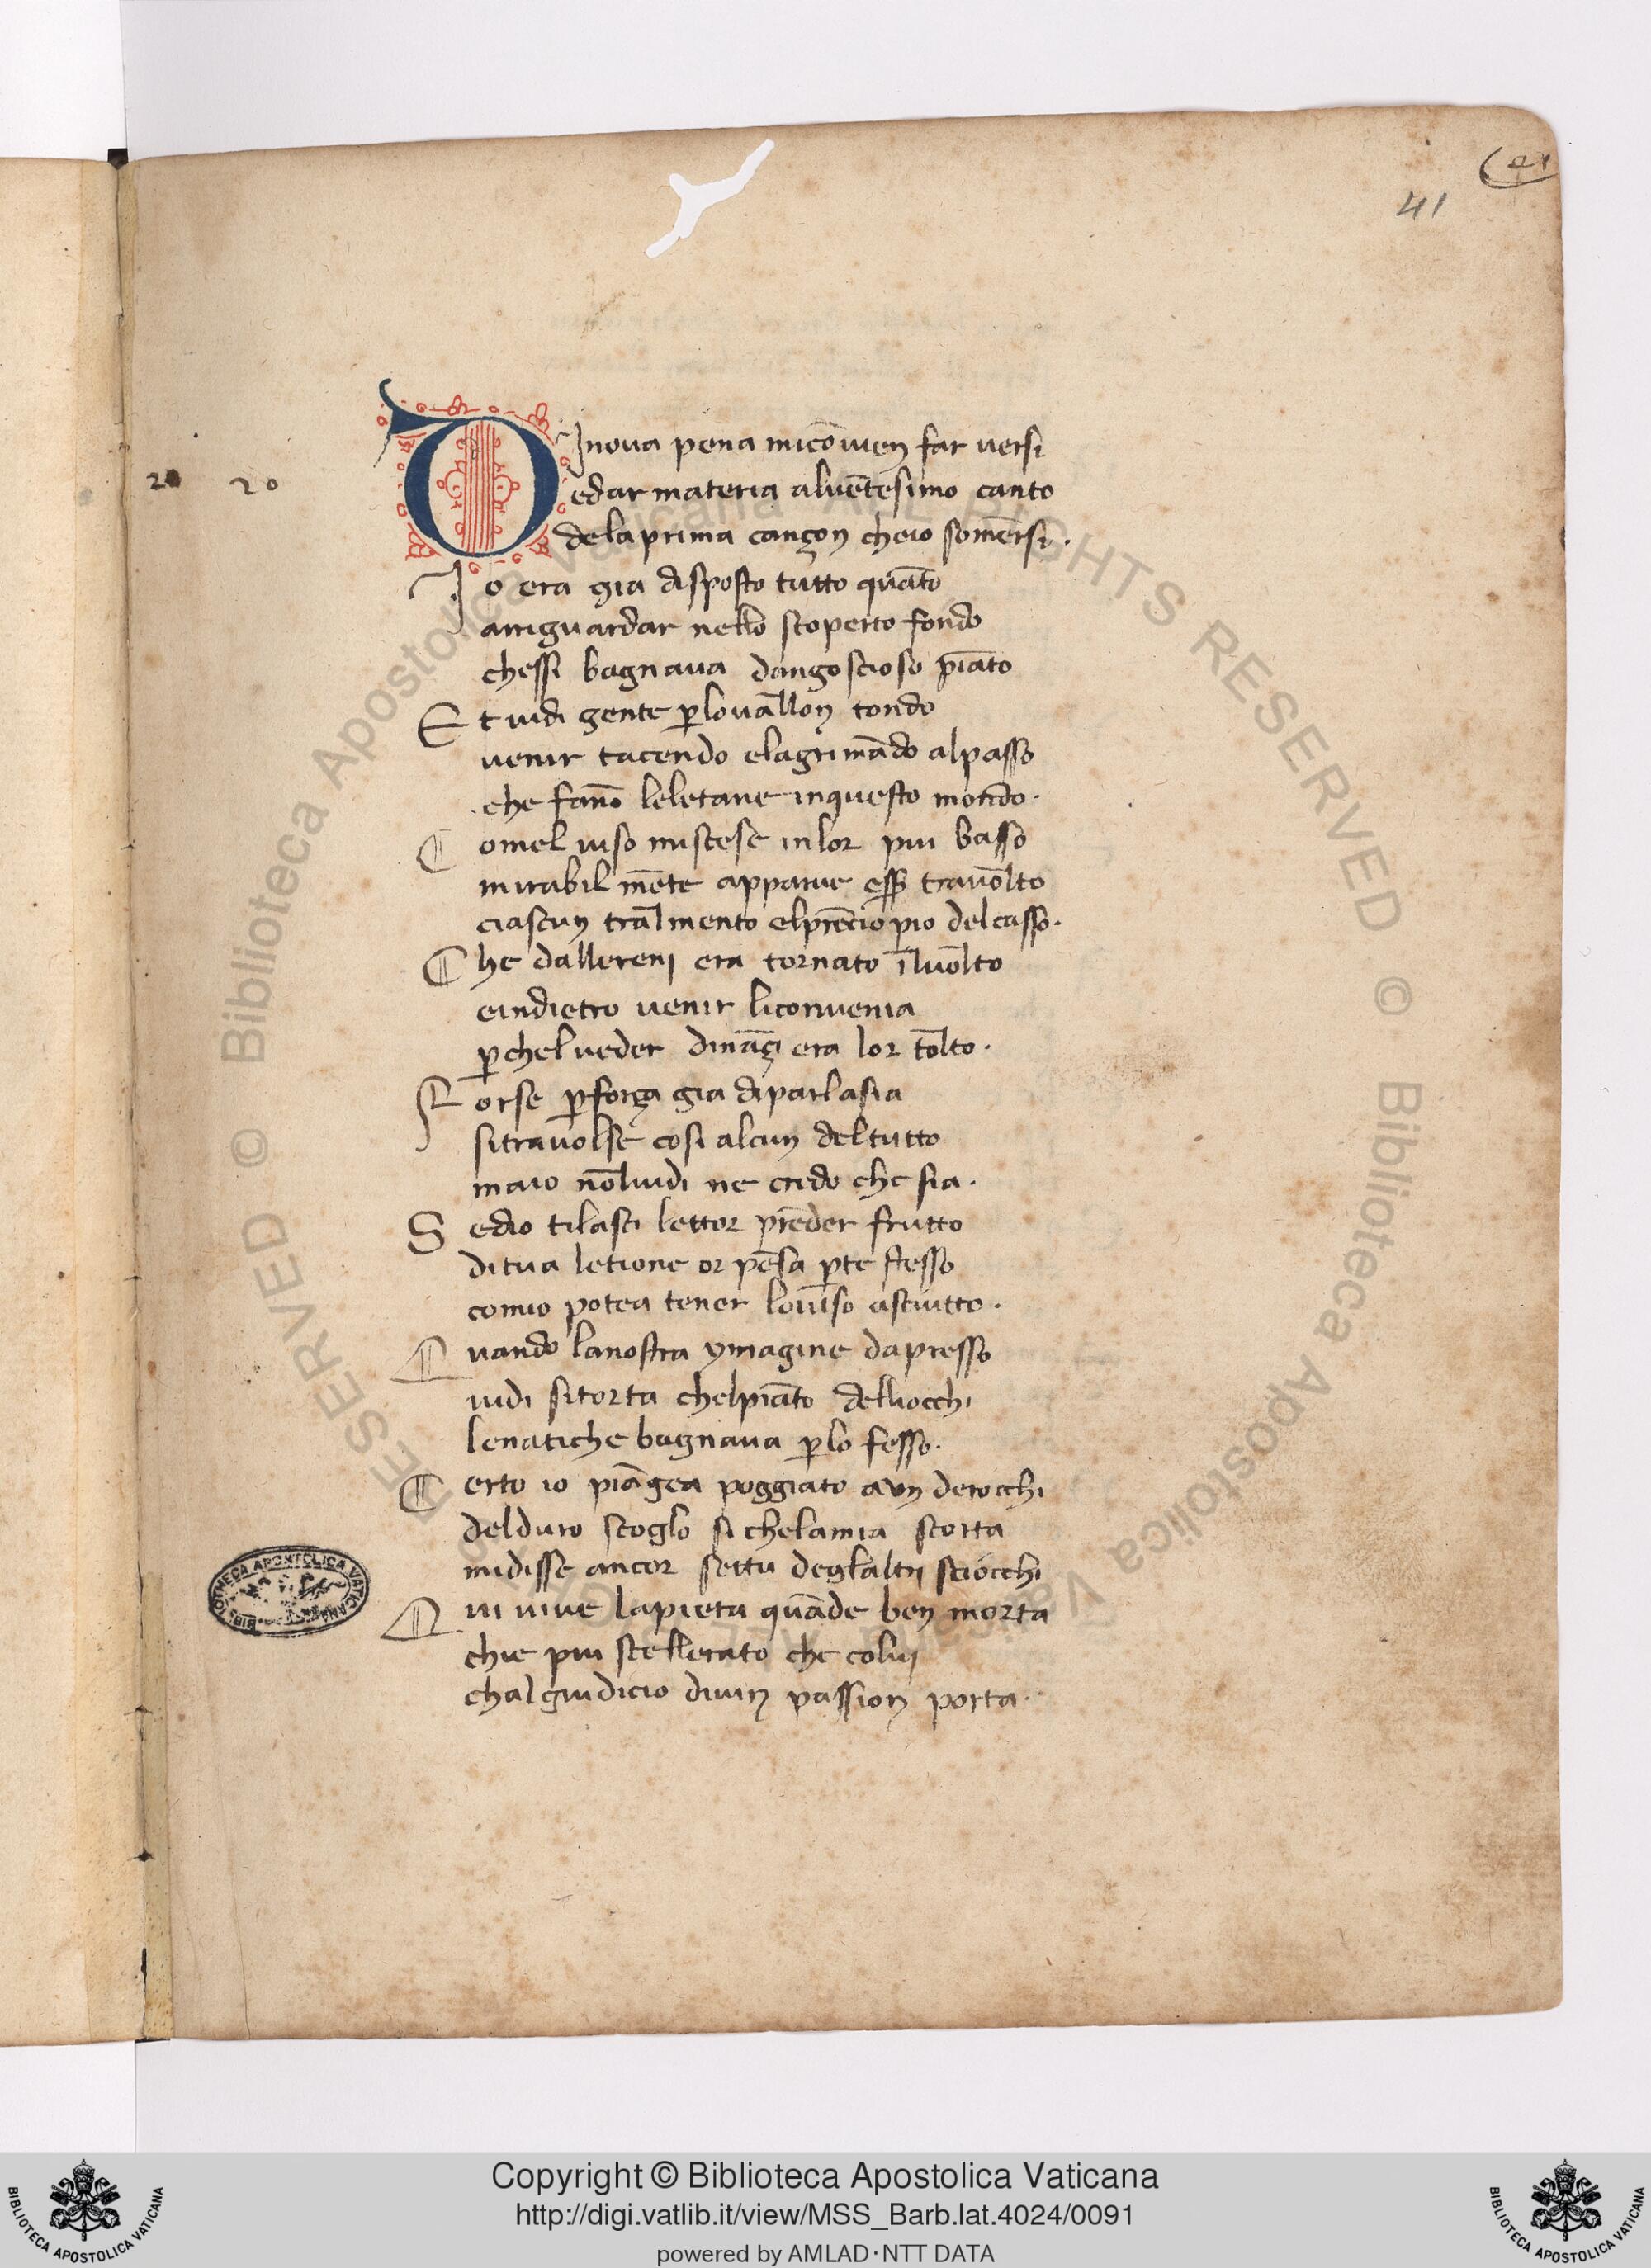 41
41
20 20
DJnova pena micōuien far versi
edar materia aluētesimo canto
dela prima cançon cheio somērsi.
Jo era gia disposto tutto quāto
arriguardar nello scoperto fondo
chessi bagnaua dangoscioso piāto
Et uidi gente ꝑlouallon tondo
venir tacendo elagrimādo alpasso
che fāno leletane inquesto mondo.
Comel uiso miscese inlor piu basso
mirabil mēte apparue eſſꝫ trauolto
ciascun tralmento elprēcio pio delcasso.
Che dallereni era tornato īluolto
eindietro uenir liconuenia
ꝑchel ueder dināçi era lor tolto.
Forse ꝑforça gia diparlasia
sitrauolse cosi alcun deltutto
maio nōluidi ne credo che sia.
Sedio tilasci lettor prēder frutto
ditua letione or pēsa ꝑte stesso
comio potea tener louiso asciutto.
Quando lanostra ymagine dapresso
uidi sitorta chelpiāto delliocchi
lenatiche bagnaua ꝑlo fesso.
Certo io piāgea poggiato aun derocchi
delduro scoglo si chelamia scorta
midisse ancor settu deglaltrj sciocchi
Qui uiue lapieta quāde ben morta
chie piu scellerato che coluj
chalgiudicio diuin passion porta.
BIBLIOTECA APOSTOLICA VATICANA
© Biblioteca Apostolica Vaticana ALL RIGHTS RESERVED © Biblioteca Apostolica Vaticana ALL RIGHTS RESERVED
Copyright © Biblioteca Apostolica Vaticana
http://digi.vatlib.it/view/MSS_Barb.lat.4024/0091
powered by AMLAD·NTT DATA
BIBLIOTECA APOSTOLICA VATICANA
BIBLIOTECA APOSTOLICA VATICANA